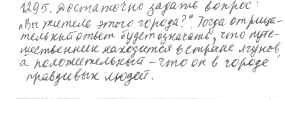 1295. Достаточно задать вопрос:
„Вы жители этого города?". Тогда отрица-
тельный ответ будет означать, что путе-
шественник находится в стране лгунов,
а положительный – что он в городе
правдивых людей.